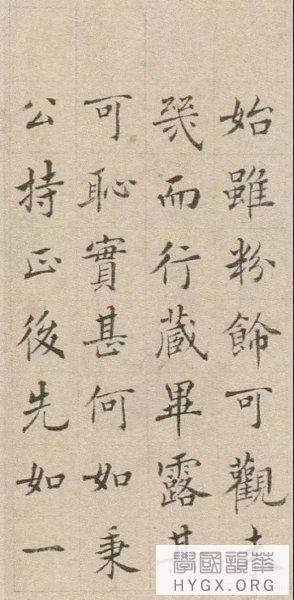 始雖粉飾可觀
㡬而行藏畢露其
可恥實甚何如秉
公持正後先如一
華韻國學
HYGX.ORG